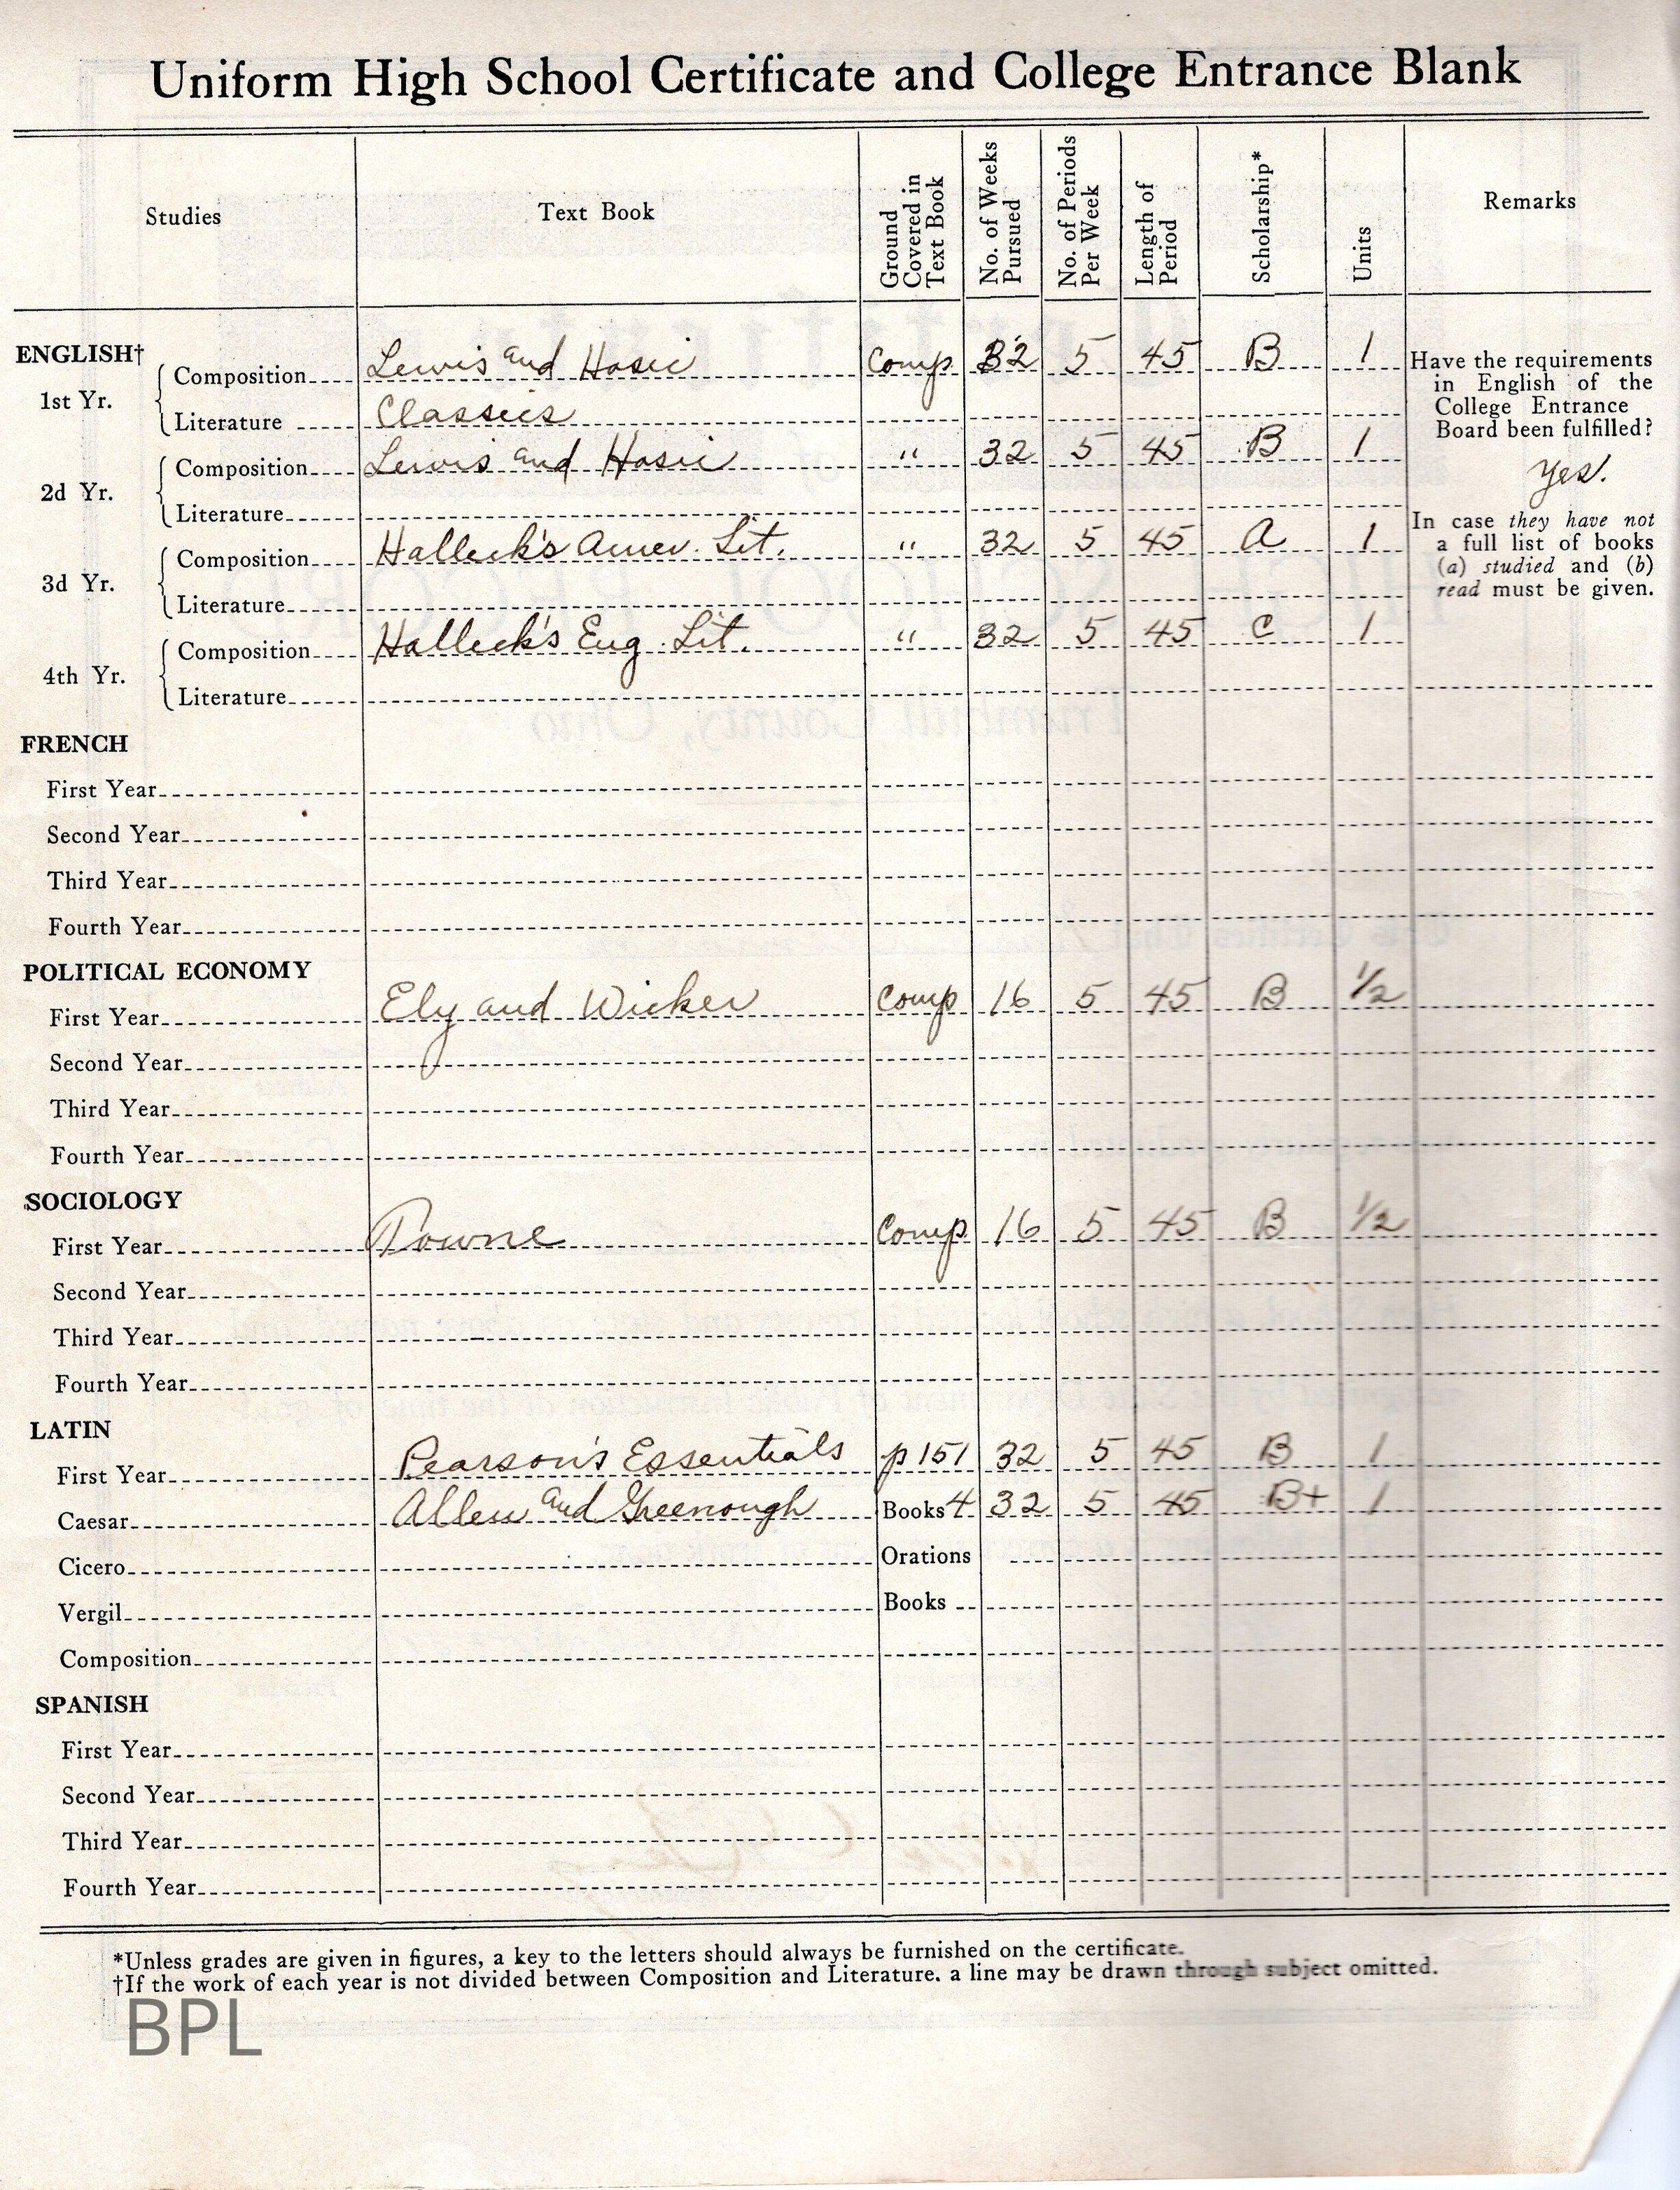 Uniform High School Certificate and College Entrance Blank
Studies Text Book Ground Covered in Text Book No. of Weeks Pursued No. of Periods Per Week Length of Period Scholarship* Units Remarks
ENGLISH†
1st Yr. Composition Lewis and Hosic Comp 32 5 45 B 1
Literature Classics
Have the requirements
in English of the
College Entrance
Board been fulfilled?
Yes.
2d Yr. Composition Lewis and Hosic " 32 5 45 B 1
Literature
In case they have not
a full list of books
(a) studied and (b)
read must be given.
3d Yr. Composition Halleck's Amer. Lit. " 32 5 45 A 1
Literature
4th Yr. Composition Halleck's Eng. Lit. " 32 5 45 C 1
Literature
FRENCH
First Year
Second Year
Third Year
Fourth Year
POLITICAL ECONOMY
First Year Ely and Wicker Comp 16 5 45 B 1/2
Second Year
Third Year
Fourth Year
SOCIOLOGY
First Year Towne Comp 16 5 45 B 1/2
Second Year
Third Year
Fourth Year
LATIN
First Year Pearson's Essentials p 151 32 5 45 B 1
Caesar Allen and Greenough Books 4 32 5 45 B+ 1
Cicero Orations
Vergil Books
Composition
SPANISH
First Year
Second Year
Third Year
Fourth Year
*Unless grades are given in figures, a key to the letters should always be furnished on the certificate.
†If the work of each year is not divided between Composition and Literature. a line may be drawn through subject omitted.
BPL